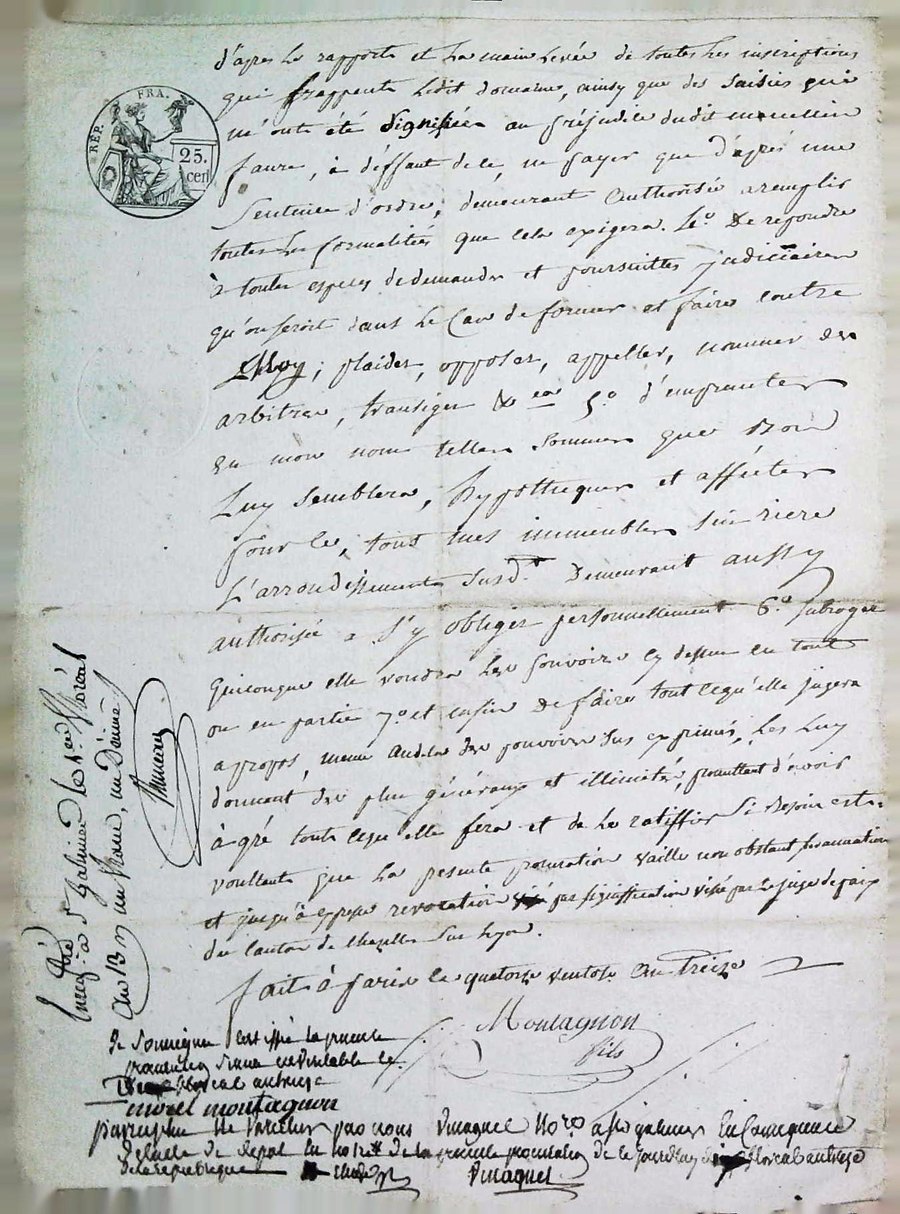 RÉP. FRA.
25. cen
d'après le rapporte et la main levée de toutes les inscriptions
qui frappents ledit domaine, ainsy que des saisies qui
m'onts été signifiées au préjudice dudit
faure, à déffaut de ce, ne payer que d'après une
Sentence d'ordre; demeurant authorisée a remplir
toutes les formalités que cela exigera. 4.º De repondre
à toutes especes de demandes et poursuittes judiciaires
qu'on seroit dans le Cas de former et faire contre
Moy; plaider, opposer, appeller, nommer des
arbitres, transiger &ca 5.º d'emprunter
en mon nom telles sommes que Bon
Luy Semblera, hypothequer et affecter
pour ce, tous mes immeubles
L'arrondissements susdt. Demeurant aussy
authorisée a s'y obliger personnellement 6.º subroger
quiconque elle voudra les pouvoirs cy dessus en tout
ou en partie 7º et enfin De faire tout cequ'elle jugera
apropos, meme audela des pouvoirs sus exprimés, Les Luy
donnant des plus généraux et illimités, promettant d'avoir
à gré tout cequ'elle fera et de le ratiffier si Besoin est.
voullants que la presente procuration vaille non obstant surannation
et jusqu'à expresse revocation par signiffication visée par le juge de paix
du canton de chazelles sur Lyon.
fait à Paris le quatorze ventose an treize
Montagnon
fils
Enreg. à St Galmier le 1er floréal
an 13
Je soussignée certiffie la presente
procuration sincere et veritable le
floreal an treize
morel montagnon
paraphé Ne Varietur par nous Vinagnet Nore a St galmier En Consequence
de l'acte de depot de la presente procuration de ce jourd'huy floreal an treize
de la republique
Vinagnet